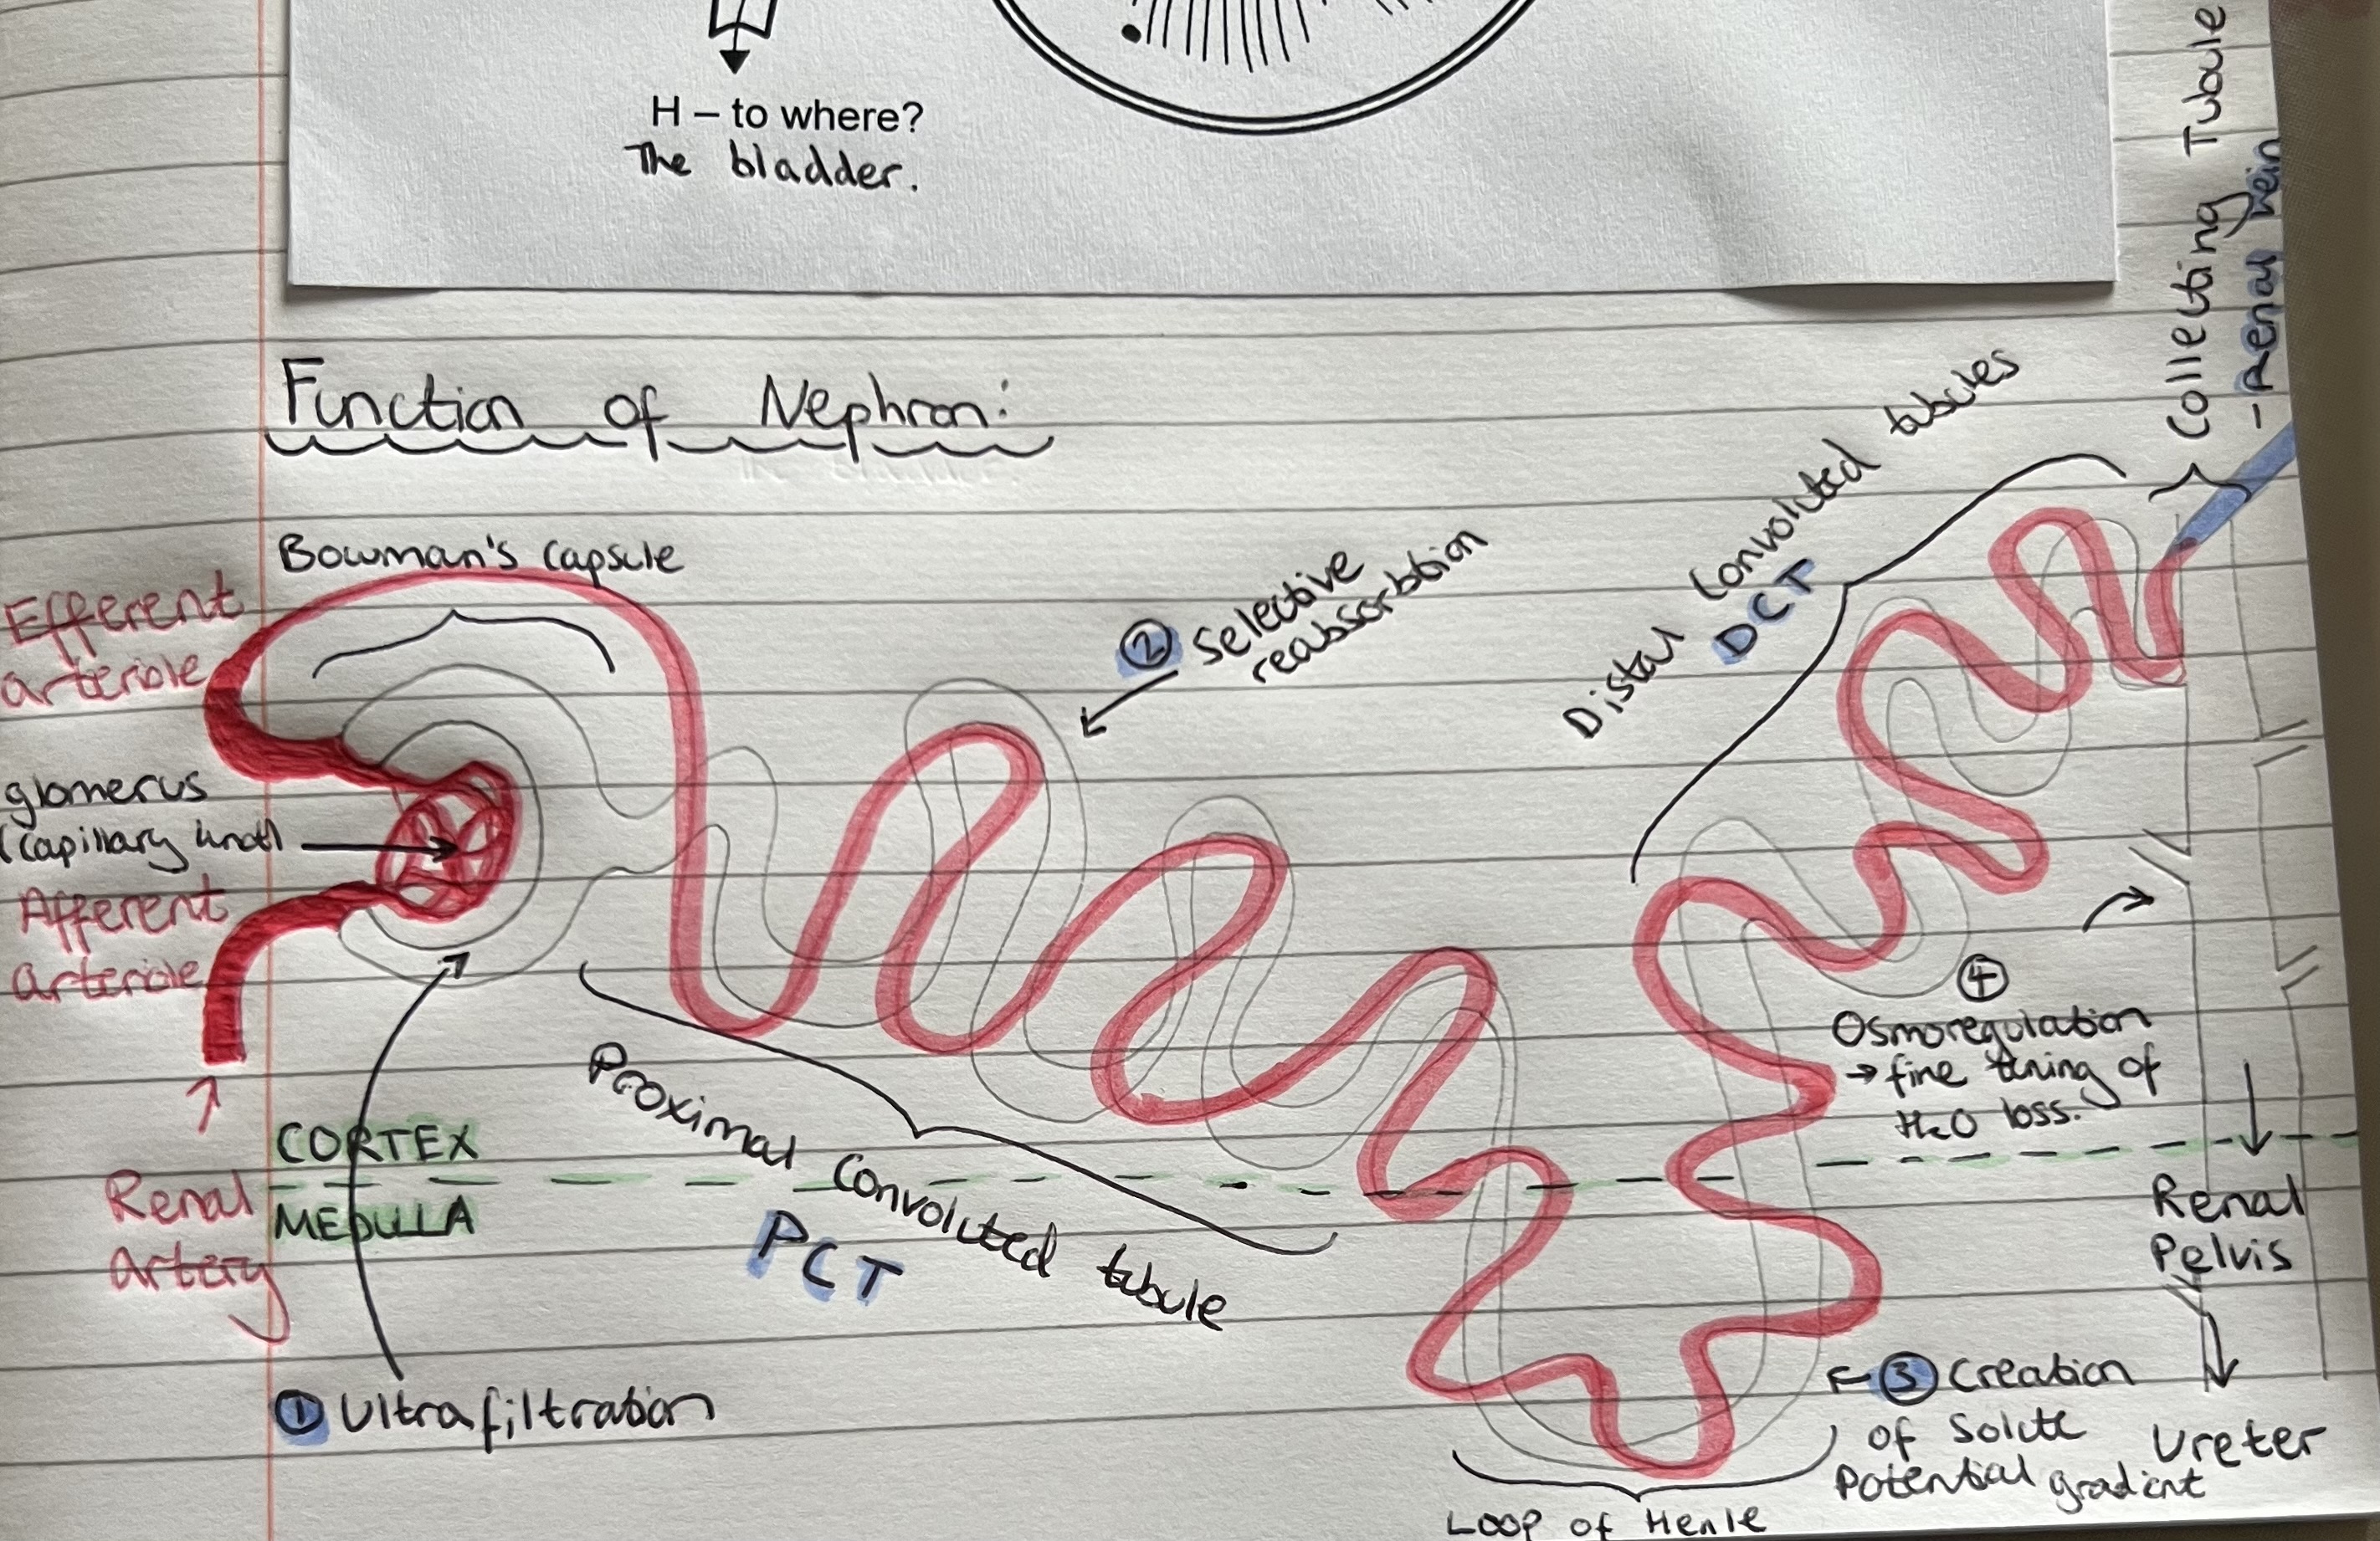 H – to where?
The bladder.
Collecting Tubule
- Renal vein
Function of Nephron:
Bowman's Capsule
Efferent
arteriole
glomerus
(capillary knot)
Afferent
arteriole
Renal
Artery
CORTEX
MEDULLA
① Ultrafiltration
② Selective
reabsorbtion
Proximal Convoluted tubule
PCT
Distal Convoluted tubules
DCT
④
Osmoregulation
→ fine tuning of
H₂O loss.
Renal
Pelvis
Ureter
③ Creation
of Solute
Potential gradient
Loop of Henle